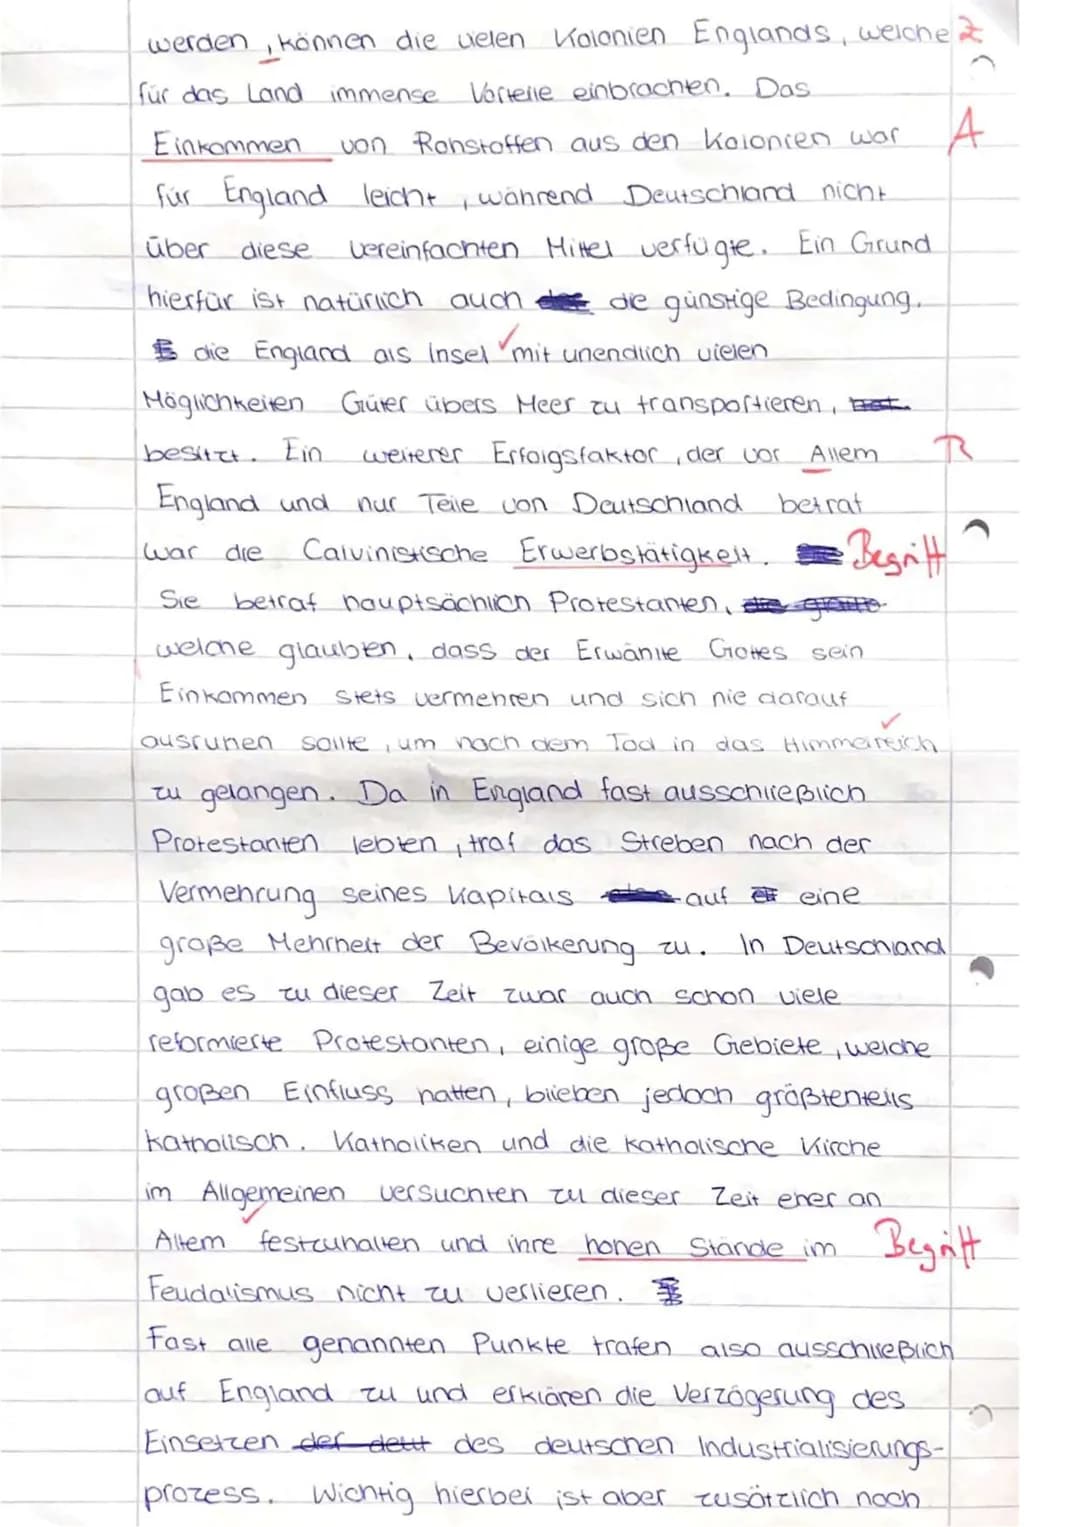 werden, können die vielen Kolonien Englands, welche Z
für das Land immense Vorteile einbrachten. Das
Einkommen von Rohstoffen aus den Kolonien war A
für England leicht, während Deutschland nicht
über diese vereinfachten Mittel verfügte. Ein Grund
hierfür ist natürlich auch die günstige Bedingung,
die England als Insel mit unendlich vielen
Möglichkeiten Güter übers Meer zu transportieren,
besitzt. Ein weiterer Erfolgsfaktor, der vor Allem R
England und nur Teile von Deutschland betraf
war die Calvinistische Erwerbstätigkeit. Begriff
Sie betraf hauptsächlich Protestanten,
welche glaubten, dass der Erwählte Gottes sein
Einkommen stets vermehren und sich nie darauf
ausruhen sollte, um nach dem Tod in das Himmelreich
zu gelangen. Da in England fast ausschließlich
Protestanten lebten, traf das Streben nach der
Vermehrung seines Kapitals auf eine
große Mehrheit der Bevölkerung zu. In Deutschland
gab es zu dieser Zeit zwar auch schon viele
reformierte Protestanten, einige große Gebiete, welche
großen Einfluss hatten, blieben jedoch größtenteils
katholisch. Katholiken und die katholische Kirche
im Allgemeinen versuchten zu dieser Zeit eher an
Altem festzuhalten und ihre hohen Stände im Begriff
Feudalismus nicht zu verlieren.
Fast alle genannten Punkte trafen also ausschließlich
auf England zu und erklären die Verzögerung des
Einsetzen der deut des deutschen Industrialisierungs-
prozess. Wichtig hierbei ist aber zusätzlich noch